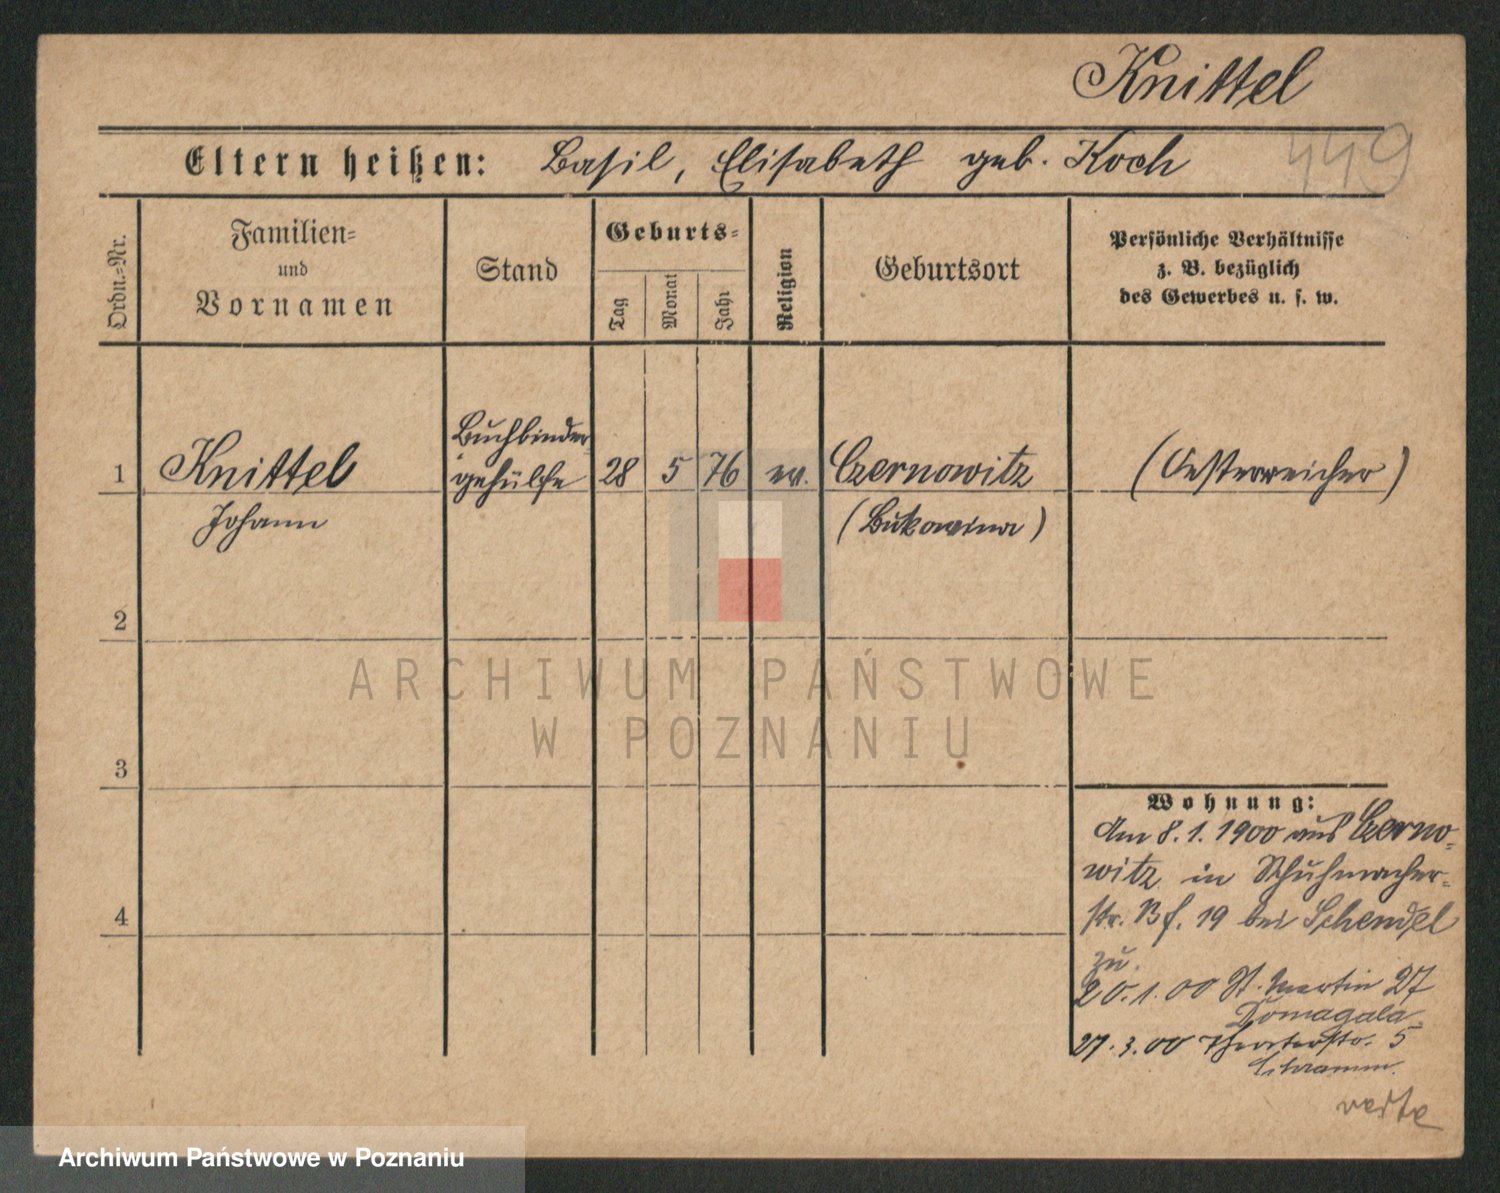 Knittel
449
Eltern heißen: Basil, Elisabeth geb. Koch
Ordn.-Nr.
Familien-
und
Vornamen
Stand
Geburts-
Tag
Monat
Jahr
Religion
Geburtsort
Persönliche Verhältnisse
z. B. bezüglich
des Gewerbes u. s. w.
1
Knittel
Johann
Buchbinder
gehülfe
28
5
76
ev.
Czernowitz
(Bukowina)
(Oesterreicher)
2
3
4
Wohnung:
Am 8.1.1900 aus Czerno-
witz in Schuhmacher-
str. Bf. 19 bei Schendel
zu.
20.1.00 St. Martin 27
Domagala
27.3.00 Theaterstr. 5
Schramm.
verte
ARCHIWUM PAŃSTWOWE
W POZNANIU
Archiwum Państwowe w Poznaniu